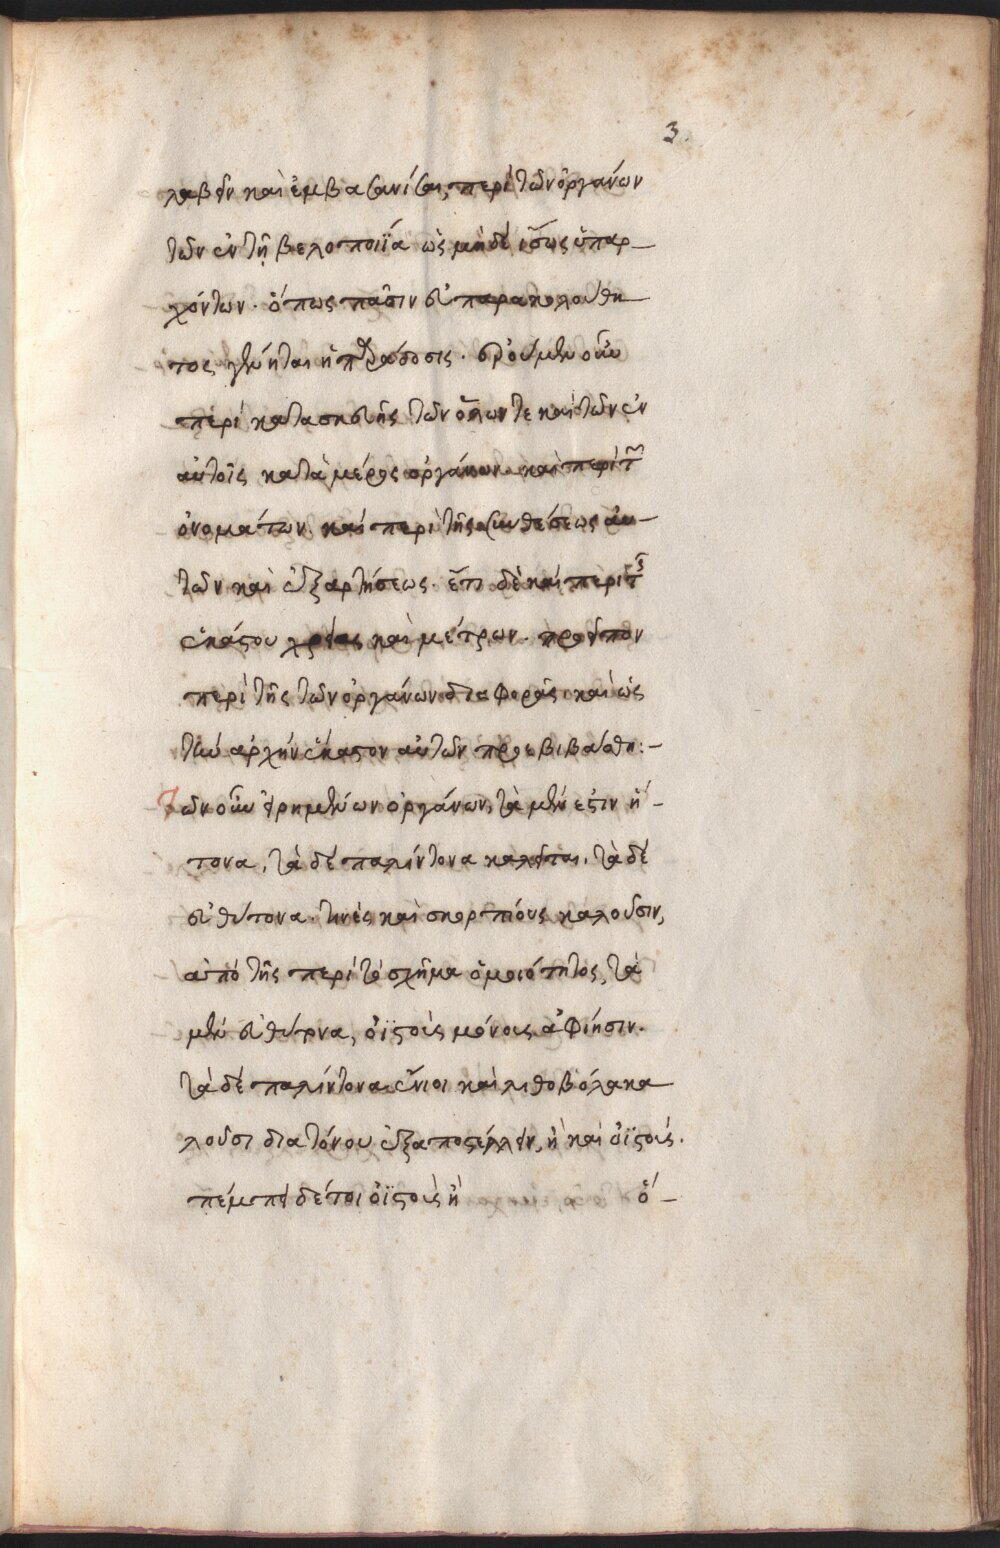 3
λαβεῖν καὶ ἐμβασανίσαι, περὶ τῶν ὀργάνων
τῶν ἐν τῇ βελοποιΐα ὡς μηδὲ ἴσως ὑπαρ–
χόντων. ὅπως πᾶσιν εὐπαρακολούθη–
τος γένηται ἡ παράδοσις. ἐροῦμεν οὖν
περὶ κατασκευῆς τῶν ὅλων τε καὶ τῶν ἐν
αὐτοῖς κατὰ μέρος ὀργάνων. καὶ περὶ τ͂
ὀνομάτων. καὶ περὶ τῆς συνθέσεως αυ–
τῶν καὶ ἐξαρτήσεως. ἔτι δὲ καὶ περὶ τ͂
ἑκάστου χρείας καὶ μέτρων. προειπὸν
περὶ τῆς τῶν ὀργάνων διαφορᾶς καὶ ὡς
τὴν ἀρχὴν ἕκαστον αὐτῶν προεβιβάσθη:–
Τῶν οὖν εἰρημένων ὀργάνων, τὰ μέν ἐστιν ἤ–
τονα, τὰ δὲ παλίντονα καλεῖται. τὰ δὲ
εὐθύτονα. τινὲς καὶ σκορπίους καλοῦσιν,
ἀπὸ τῆς περὶ τὸ σχῆμα ὁμοιότητος, τὰ
μὲν εὐθύτονα, ὀϊστοὺς μόνους ἀφίησιν.
τὰ δὲ παλίντονα ἔνιοι καὶ λιθοβόλα κα
λοῦσι διὰ τόνου ἐξαποστέλλειν, ἢ καὶ ὀϊστούς.
πέμπει δέ τοι ὀϊστοὺς ἢ ὁ–